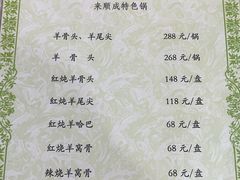 来顺成特色锅
羊骨头、羊尾尖 288 元/锅
羊骨头 268 元/锅
红炖羊骨头 148 元/盘
红炖羊尾尖 118 元/盘
红炖羊哈巴 68 元/盘
红烧羊窝骨 68 元/盘
辣烧羊窝骨 68 元/盘